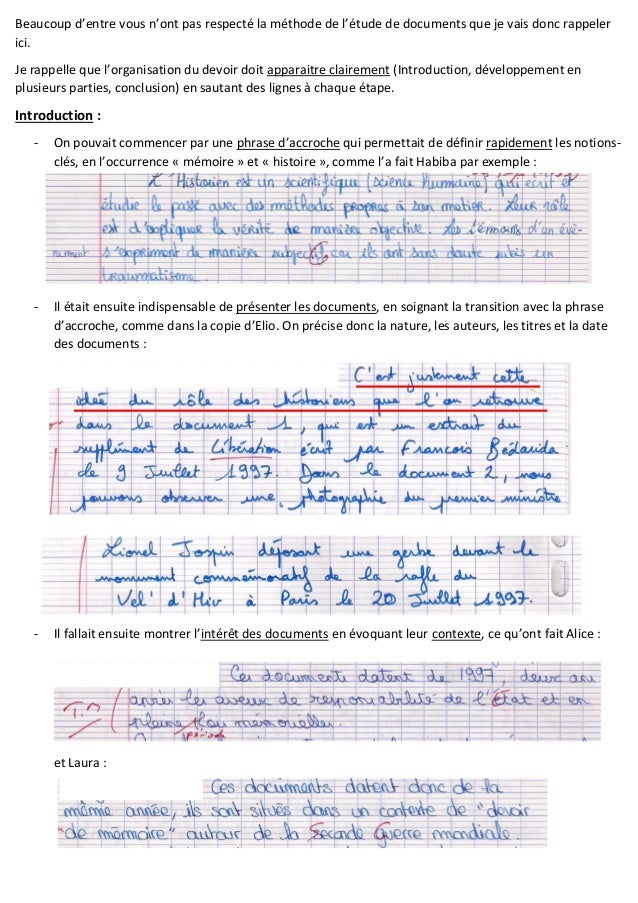 Beaucoup d’entre vous n’ont pas respecté la méthode de l’étude de documents que je vais donc rappeler
ici.
Je rappelle que l’organisation du devoir doit apparaitre clairement (Introduction, développement en
plusieurs parties, conclusion) en sautant des lignes à chaque étape.
Introduction :
- On pouvait commencer par une phrase d’accroche qui permettait de définir rapidement les notions-
clés, en l’occurrence « mémoire » et « histoire », comme l’a fait Habiba par exemple :
L'Historien est un scientifique (science humaine) qui écrit et
étudie le passé avec des méthodes propres à son métier. Leur rôle
est d'expliquer la vérité de manière objective. Les témoins d'un évè-
nement s'expriment de manière subjectif car ils ont sans doute subis un
traumatisme.
- Il était ensuite indispensable de présenter les documents, en soignant la transition avec la phrase
d’accroche, comme dans la copie d’Elio. On précise donc la nature, les auteurs, les titres et la date
des documents :
C'est justement cette
ideé du rôle des historiens que l'on retrouve
dans le document 1, qui est un extrait du
supplément de Libération écrit par François Bédarida
le 9 Juillet 1997. Dans le document 2, nous
pouvons observer une photographie du premier ministre
Lionel Jospin déposant une gerbe devant le
monument commémoratif de la rafle du
Vel' d'Hiv à Paris le 20 Juillet 1997.
- Il fallait ensuite montrer l’intérêt des documents en évoquant leur contexte, ce qu’ont fait Alice :
Ces documents datent de 1997, deux ans
T.B après les aveux de responsabilité de l'État et en
pleine mémorielles.
période
et Laura :
Ces documents datent donc de la
même année, ils sont situés dans un contexte de "devoir
de mémoire" autour de la Seconde Guerre mondiale.